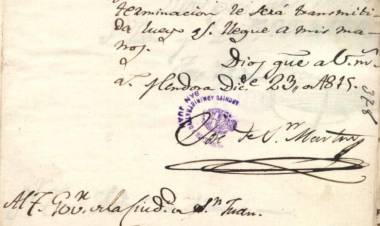 terminacion le será transmiti-
da luego q.e llegue a mis ma-
nos.
Dios gue a V. m.
a.s Mendoza Dic.e 23, de 1815.
378
José de S.n Martin
Al T. Gov.r de la Ciud.d de S.n Juan.